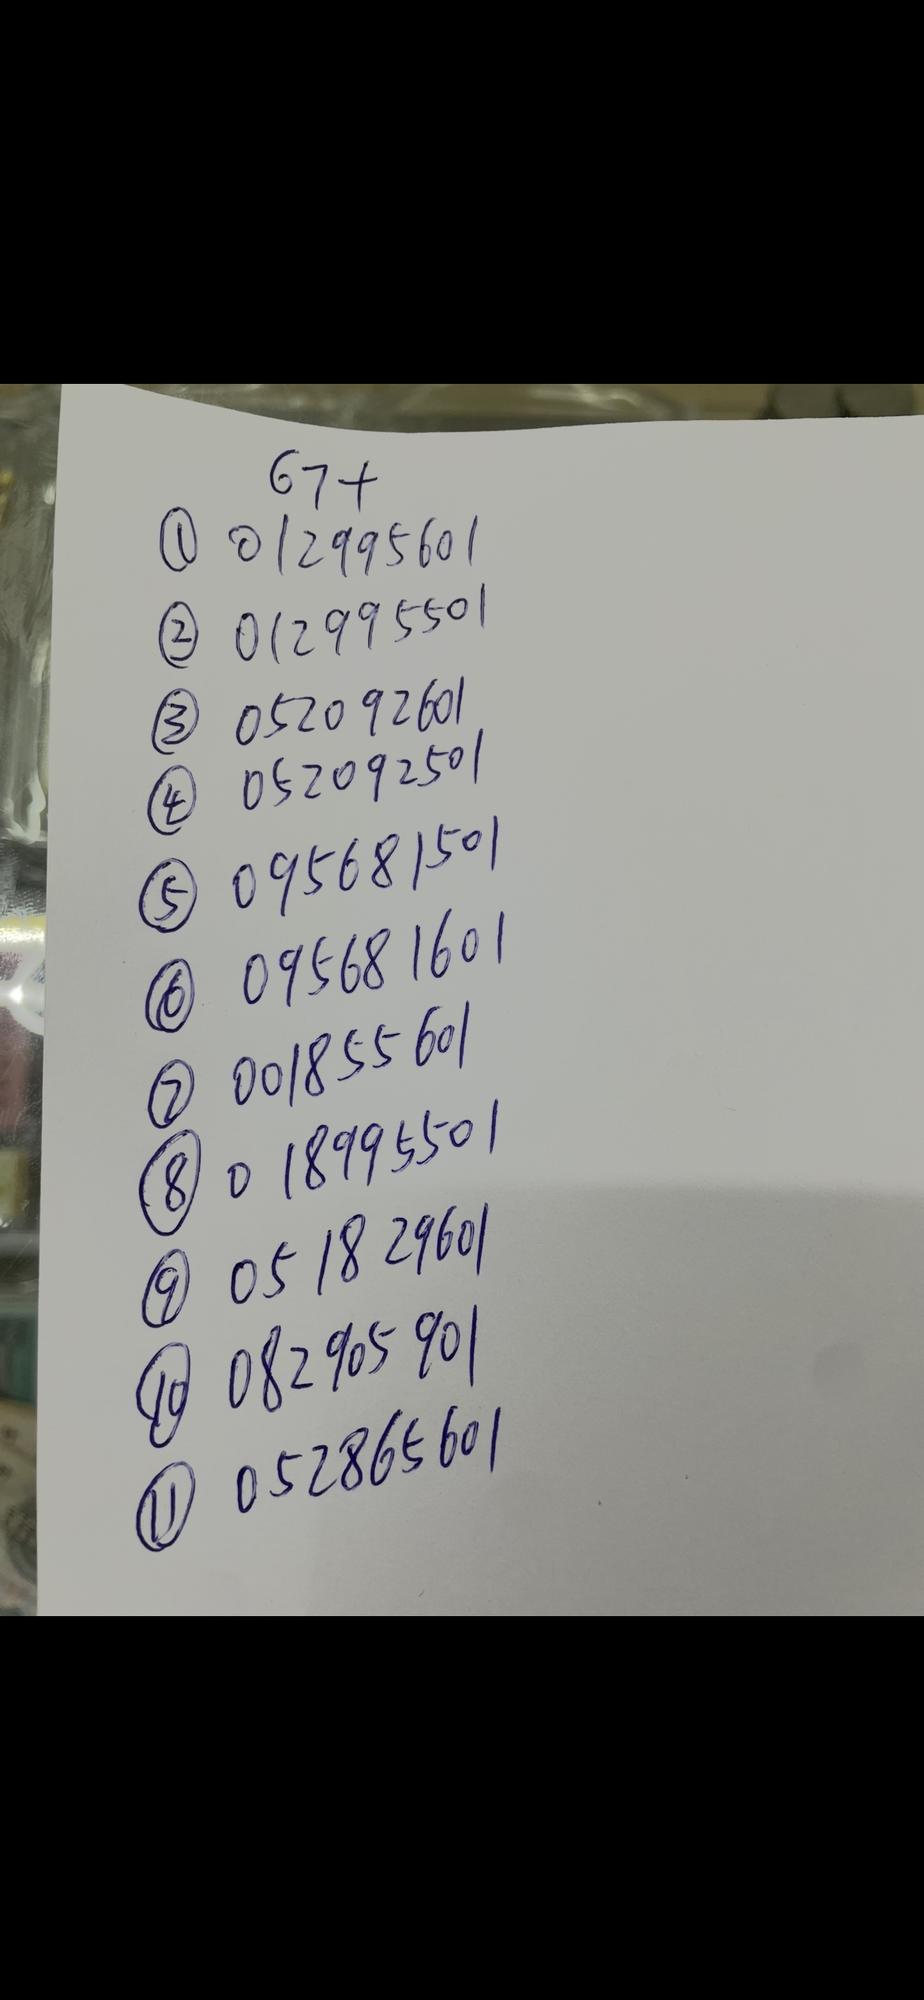 67+
① 012995601
② 012995501
③ 052092601
④ 052092501
⑤ 095681501
⑥ 095681601
⑦ 001855601
⑧ 018995501
⑨ 051829601
⑩ 082905901
⑪ 052865601